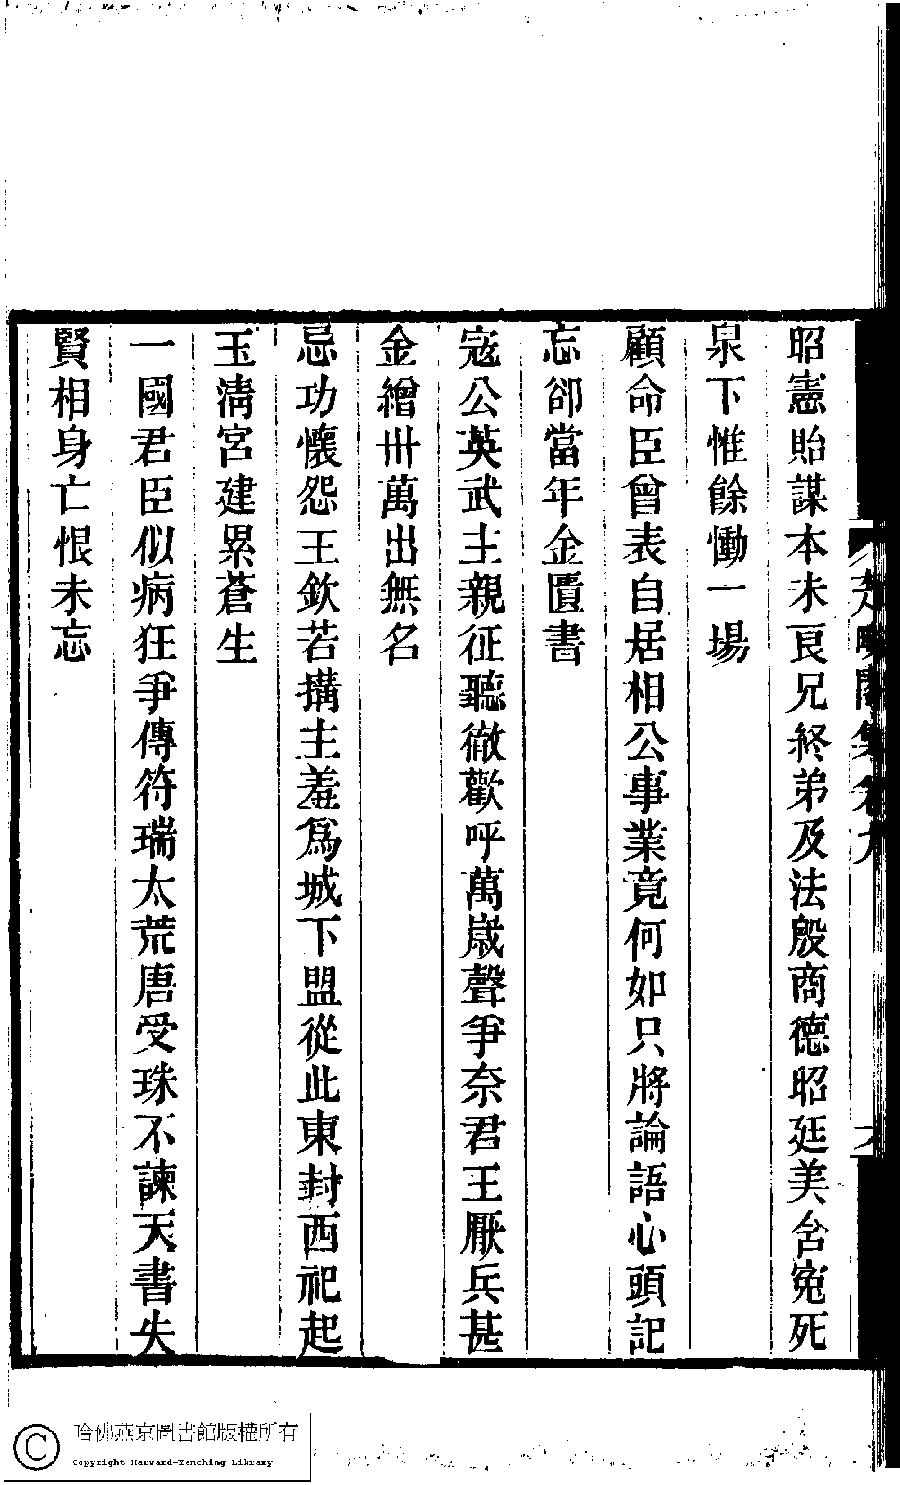 昭憲貽謀本未良兄終弟及法殷商德昭廷美含寃死
泉下惟餘慟一場
顧命臣曾表自居相公事業竟何如只將論語心頭記
忘卻當年金匱書
寇公英武主親征聽徹歡呼萬歲聲爭奈君王厭兵甚
金繒卅萬出無名
忌功懷怨王欽若搆主羞爲城下盟從此東封西祀起
玉淸宮建累蒼生
一國君臣似病狂爭傳符瑞太荒唐受珠不諫天書失
賢相身亡恨未忘
哈佛燕京圖書館版權所有
Copyright Harvard-Yenching Library